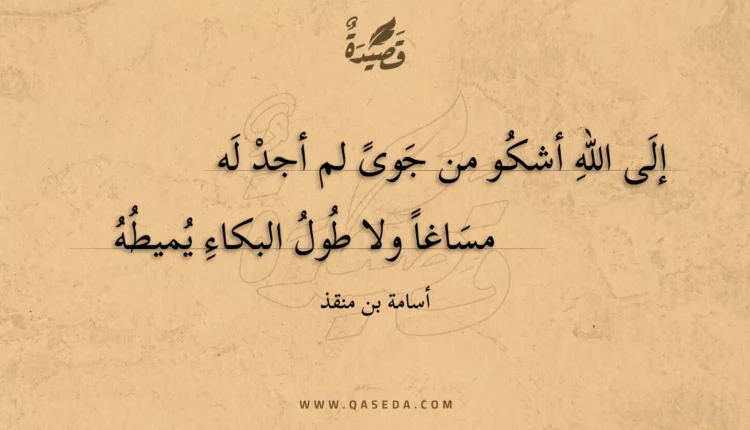 قَصِيْدَةٌ
إلَى اللهِ أشكُو من جَوىً لم أجدْ لَه
مسَاغاً ولا طُولُ البكاءِ يُميطُهُ
أسامة بن منقذ
WWW.QASEDA.COM